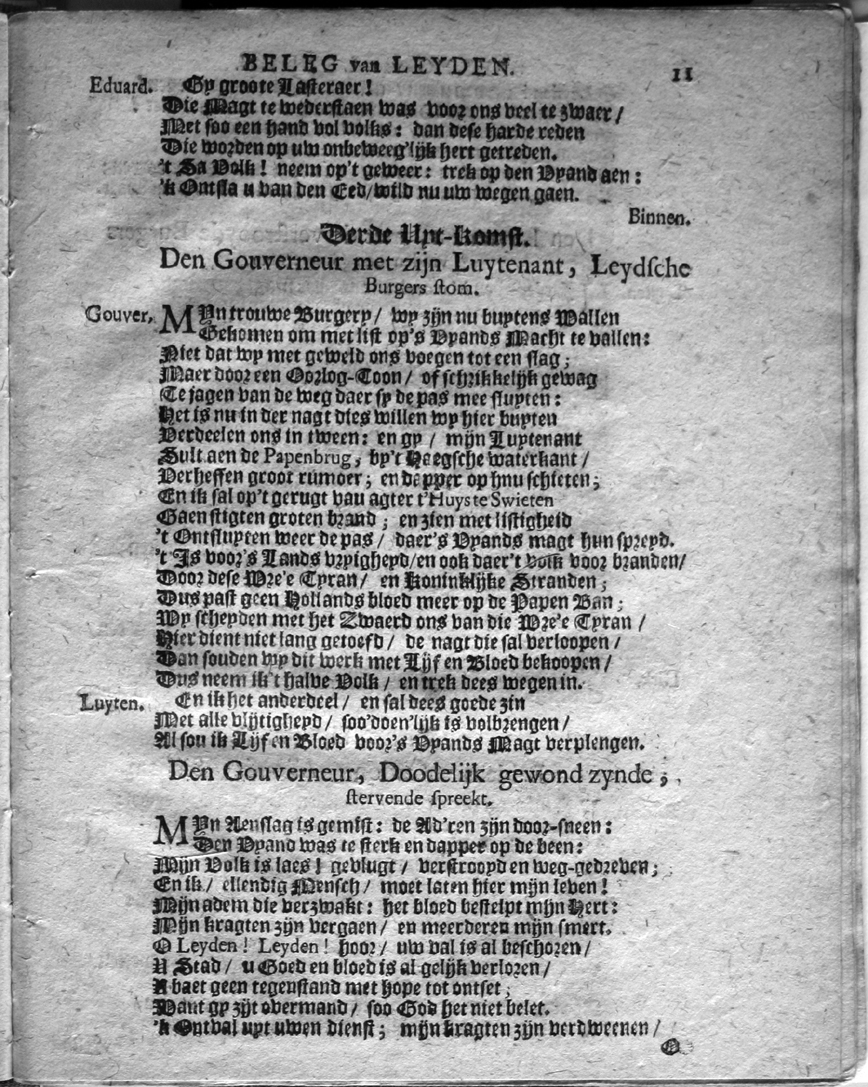 BELEG van LEYDEN. 11
Eduard. Gy groote Lasteraer!
Die Magt te wederstaen was voor ons veel te zwaer /
Met soo een hand vol volks: dan dese harde reden
Die worden op uw onbeweeg'lijk hert getreden.
't Sa Volk! neem op't geweer: trek op den Vyand aen:
'k Ontsla u van den Eed / wild nu uw wegen gaen.
Binnen.
Derde Uyt-komst.
Den Gouverneur met zijn Luytenant, Leydsche
Burgers stom.
Gouver. MYn trouwe Burgery / wy zijn nu buytens Wallen
Gekomen om met list op's Vyands Macht te vallen:
Niet dat wy met geweld ons voegen tot een slag;
Maer door een Oorlog-Toon / of schrikkelijk gewag
Te jagen van de weg daer sy de pas mee sluyten:
Het is nu in der nagt dies willen wy hier buyten
Verdeelen ons in tween: en gy / mijn Luytenant
Sult aen de Papenbrug, by't Haegsche waterkant /
Verheffen groot rumoer; en dapper op hnu schieten;
En ik sal op't gerugt vau agter t'Huys te Swieten
Gaen stigten groten brand; en zien met listigheid
't Ontsluyten weer de pas / daer's Vyands magt hun spreyd.
't Is voor's Lands vryigheyd / en ook daer't volk voor branden /
Door dese Wre'e Tyran / en Koninklijke Stranden;
Dus past geen Hollands bloed meer op de Papen Ban;
Wy scheyden met het Zwaerd ons van die Wre'e Tyran /
Hier dient niet lang getoefd / de nagt die sal verloopen /
Dan souden wy dit werk met Lijf en Bloed bekoopen /
Dus neem ik 't halve Volk / en trek dees wegen in.
Luyten. En ik het anderdeel / en sal dees goede zin
Met alle vlijtigheyd / soo'doen'lijk is volbrengen /
Al sou ik Lijf en Bloed voor's Vyands Magt verplengen.
Den Gouverneur, Doodelijk gewond zynde,
stervende spreekt.
MYn Aenslag is gemist: de Ad'ren zijn door-sneen:
Den Vyand was te sterk en dapper op de been:
Mijn Volk is laes! gevlugt / verstrooyd en weg-gedreven;
En ik / ellendig Mensch / moet laten hier mijn leven!
Mijn adem die verzwakt: het bloed bestelpt mijn Hert:
Mijn kragten zijn vergaen / en meerderen mijn smert.
O Leyden! Leyden! hoor / uw val is al beschoren /
U Stad / u Goed en bloed is al gelijk verloren /
U baet geen tegenstand met hope tot ontset;
Want gy zijt overmand / soo God het niet belet.
'k Ontval uyt uwen dienst; mijn kragten zijn verdweenen /